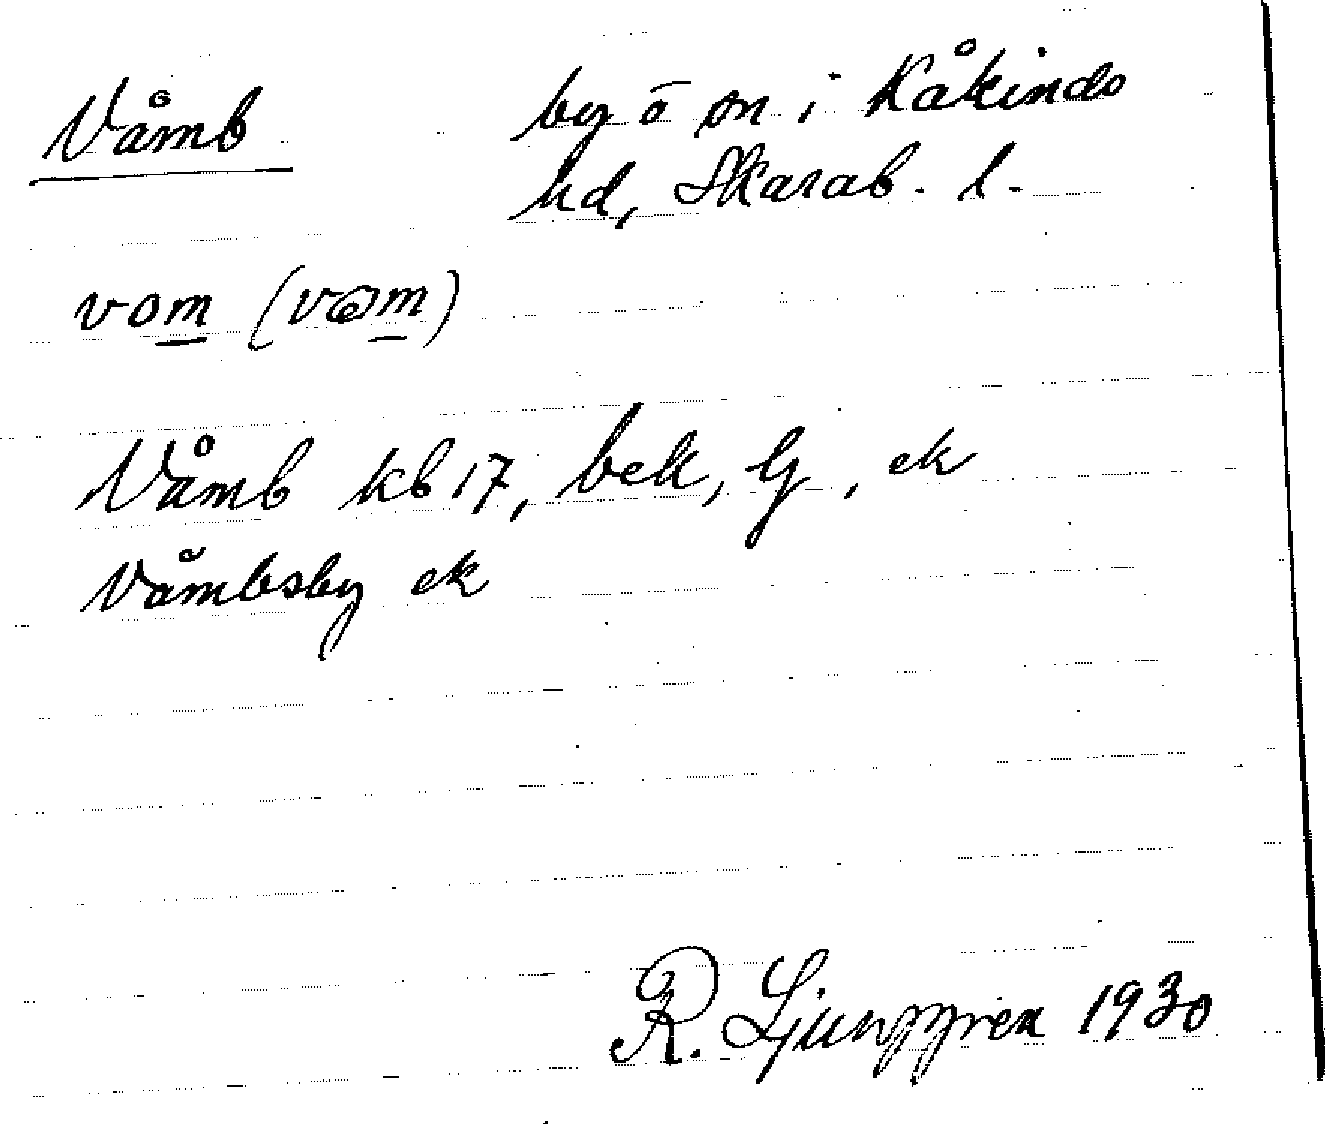 Våmb by o sn i Kåkinds
hd, Skarab. l.
vom (vɷm)
Våmb kb 17, bek, G, ek
Våmbsby ek
R. Ljunggren 1930